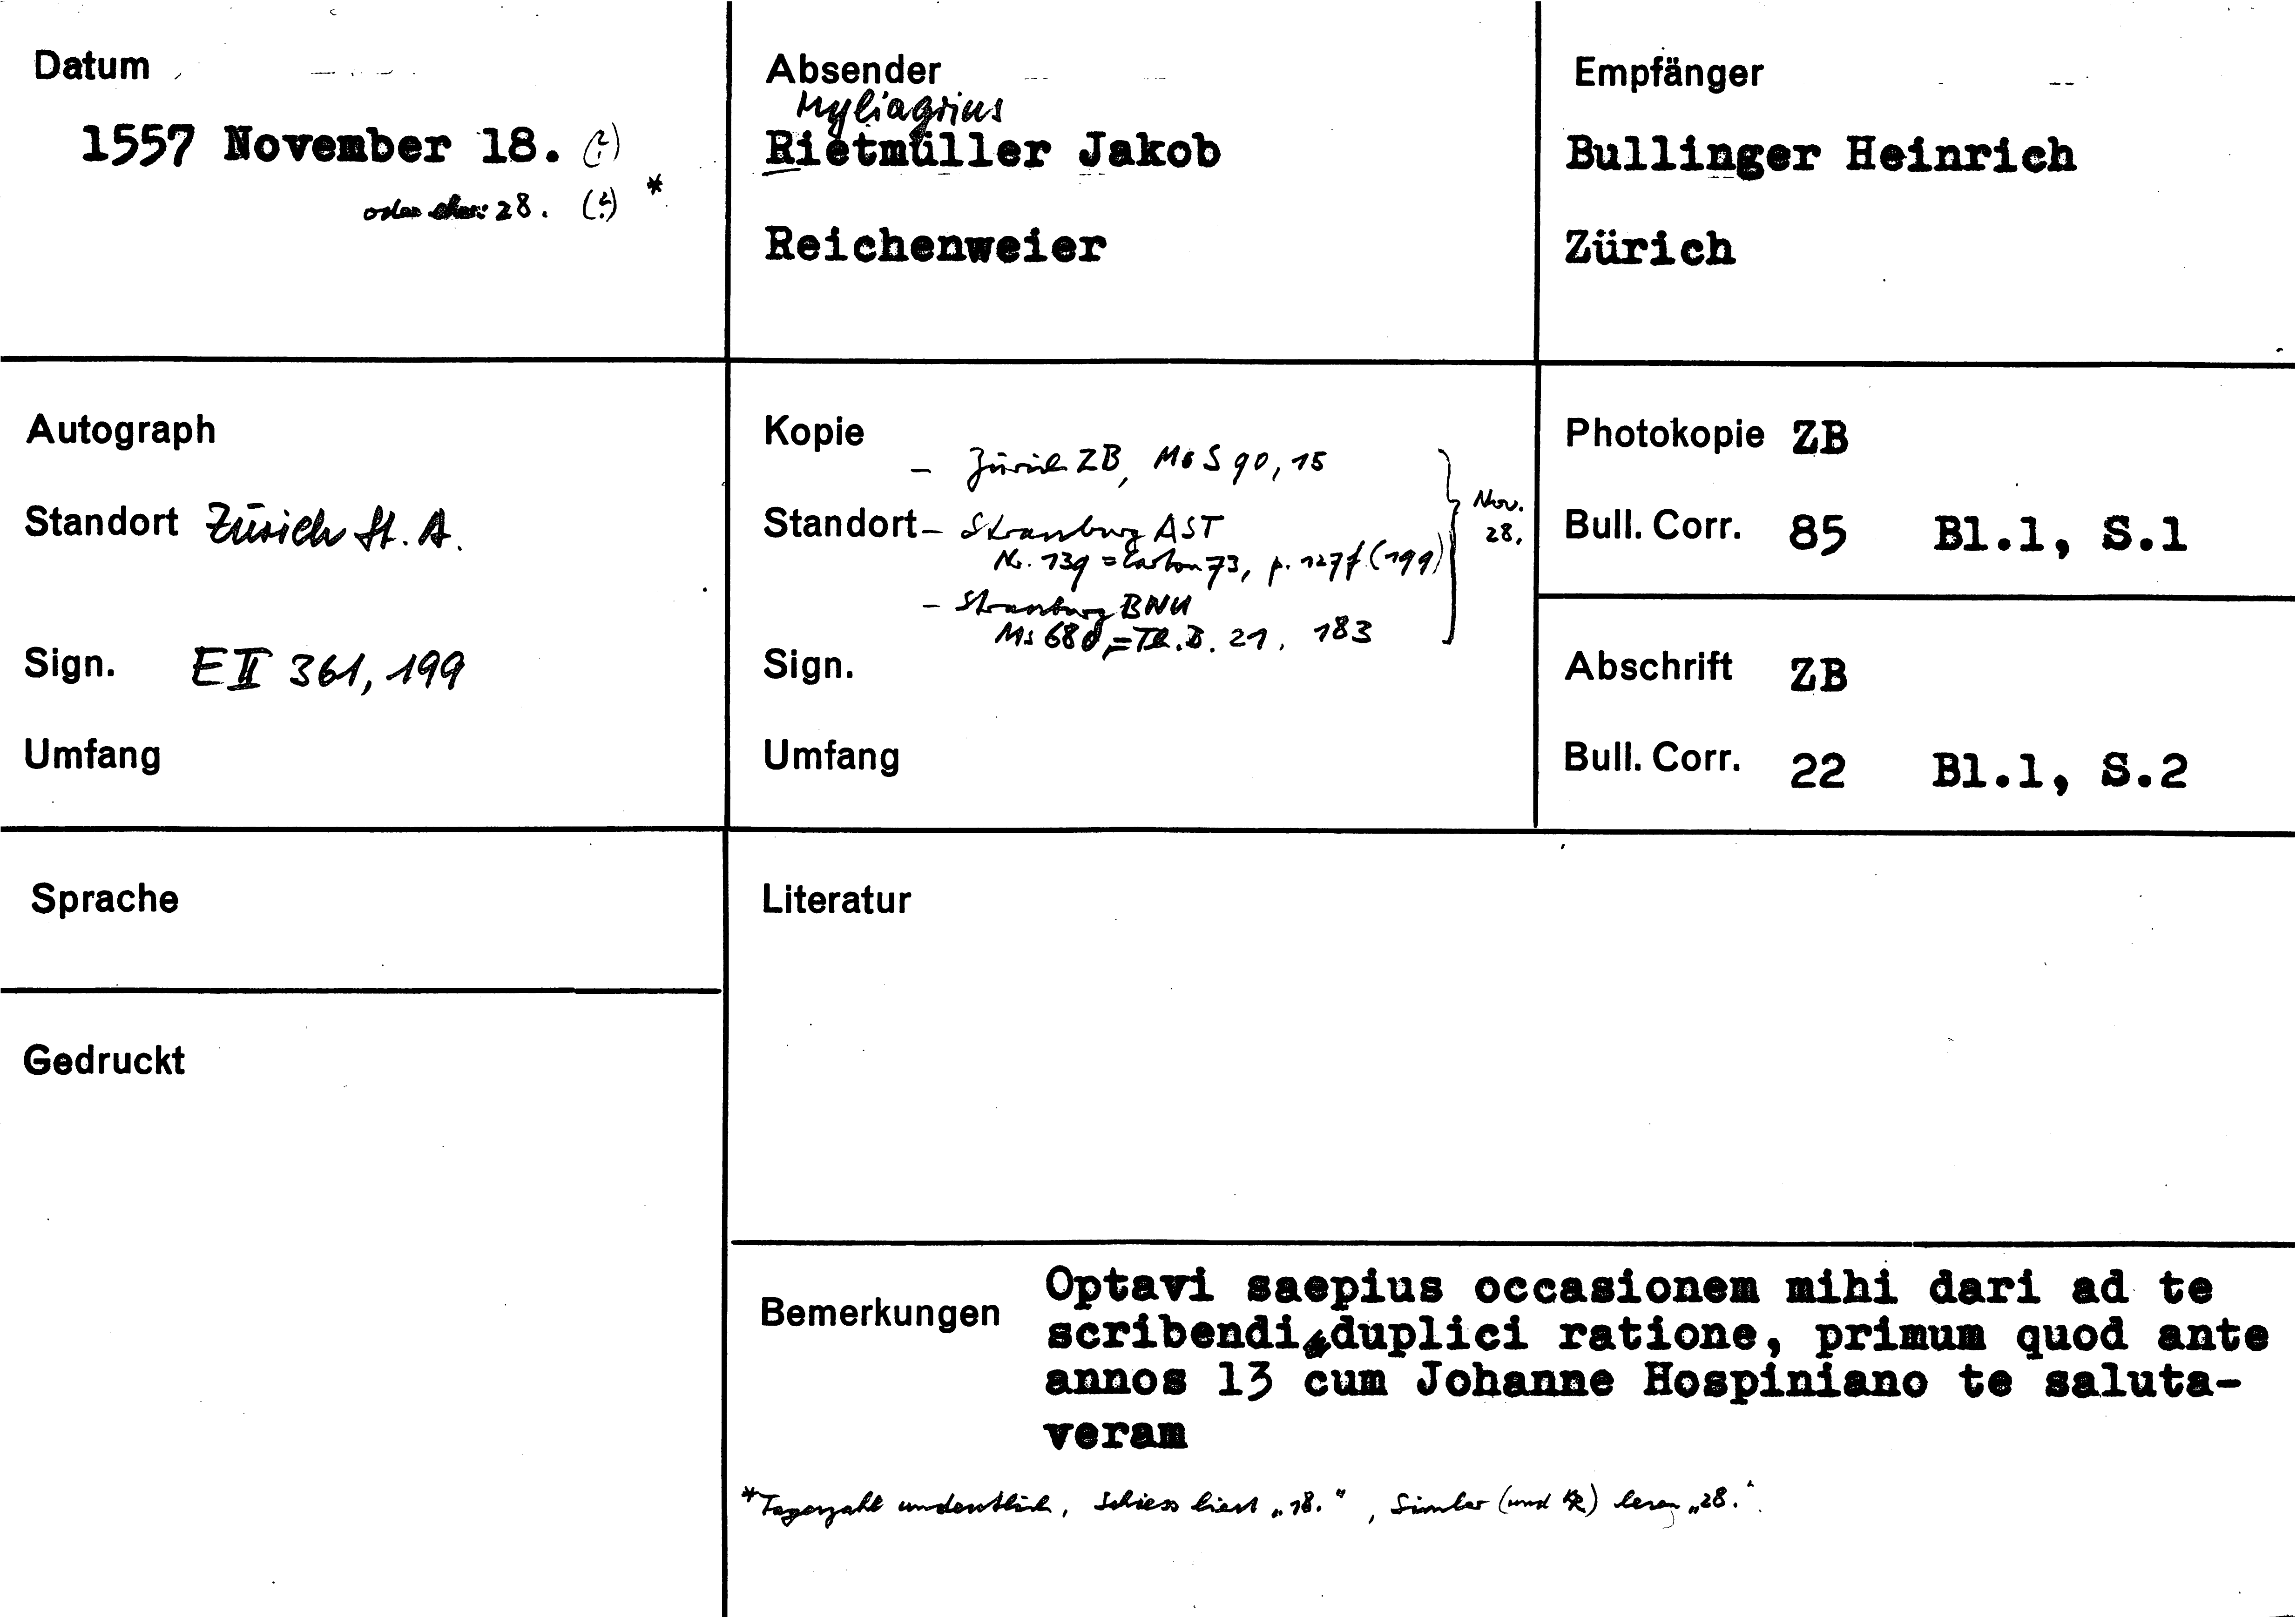 Datum
1557 November 18. (?)
oder 28. (?) *
Absender
Myliagrius
Rietmüller Jakob
Reichenweier
Empfänger
Bullinger Heinrich
Zürich
Autograph
Standort Zürich St. A.
Sign. E II 361, 199
Umfang
Kopie
- Zürich ZB, Ms S 90, 15
Standort - Strassburg AST
Nr. 139 = Carton 73, p. 127f (199)
- Strassburg BNU
Ms 68 = Th. B. 21, 183
Nov.
28.
Sign.
Umfang
Photokopie ZB
Bull. Corr. 85 Bl.1, S.1
Abschrift ZB
Bull. Corr. 22 Bl.1, S.2
Sprache
Literatur
Gedruckt
Bemerkungen
Optavi saepius occasionem mihi dari ad te
scribendi duplici ratione, primum quod ante
annos 13 cum Johanne Hospiniano te saluta-
veram
*Tageszahl undeutlich, Schiess liest „18.", Simler (und) lesen „28."